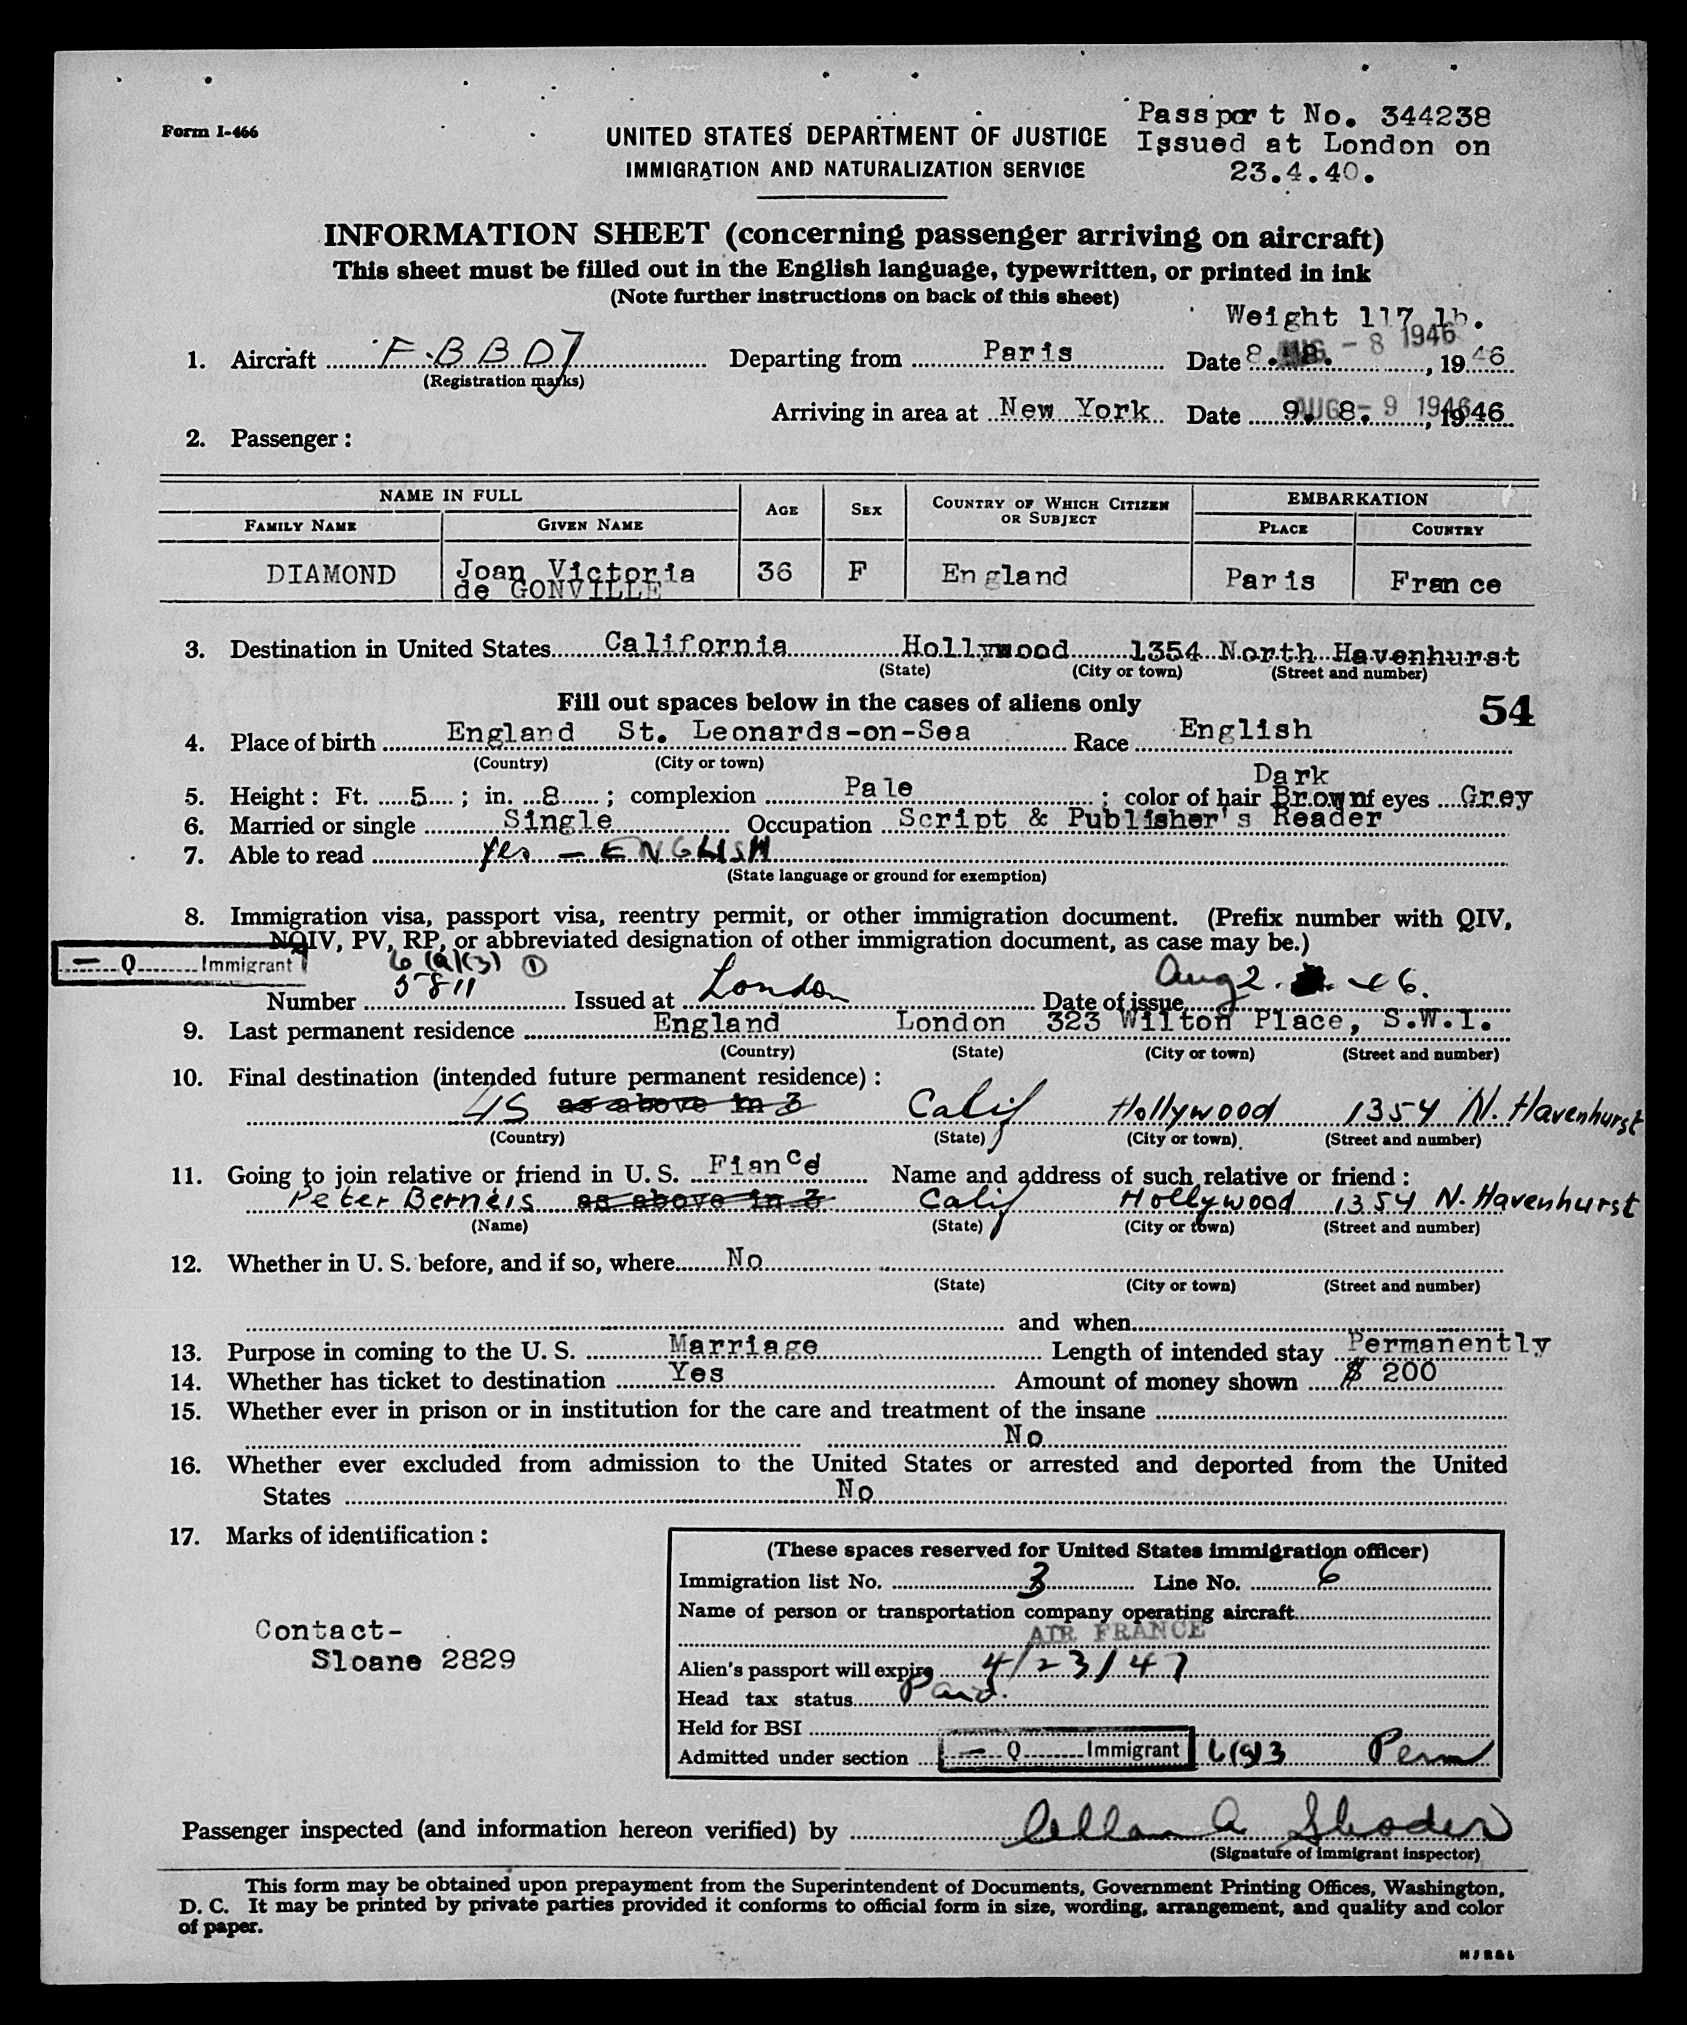 Form I-466
Passport No. 344238
Issued at London on
23.4.40.
UNITED STATES DEPARTMENT OF JUSTICE
IMMIGRATION AND NATURALIZATION SERVICE
INFORMATION SHEET (concerning passenger arriving on aircraft)
This sheet must be filled out in the English language, typewritten, or printed in ink
(Note further instructions on back of this sheet)
Weight 117 lb.
AUG - 8 1946
1. Aircraft F.BBDJ Departing from Paris Date 8. 8. , 19 46
(Registration marks)
Arriving in area at New York Date 9. 8. , 1946
AUG - 9 1946
2. Passenger:
NAME IN FULL AGE SEX COUNTRY OF WHICH CITIZEN OR SUBJECT EMBARKATION
FAMILY NAME GIVEN NAME PLACE COUNTRY
DIAMOND Joan Victoria de GONVILLE 36 F England Paris France
3. Destination in United States California Hollywood 1354 North Havenhurst
(State) (City or town) (Street and number)
Fill out spaces below in the cases of aliens only 54
4. Place of birth England St. Leonards-on-Sea Race English
(Country) (City or town)
5. Height: Ft. 5 ; in. 8 ; complexion Pale ; color of hair Dark Brown of eyes Grey
6. Married or single Single Occupation Script & Publisher's Reader
7. Able to read Yes — ENGLISH
(State language or ground for exemption)
8. Immigration visa, passport visa, reentry permit, or other immigration document. (Prefix number with QIV,
NQIV, PV, RP, or abbreviated designation of other immigration document, as case may be.)
— Q Immigrant 6(a)(3) ①
Number 5811 Issued at London Date of issue Aug 2. 46.
9. Last permanent residence England London 323 Wilton Place, S.W.1.
(Country) (State) (City or town) (Street and number)
10. Final destination (intended future permanent residence):
US as above in 3 Calif Hollywood 1354 N. Havenhurst
(Country) (State) (City or town) (Street and number)
11. Going to join relative or friend in U. S. Fiancé Name and address of such relative or friend:
Peter Berneis as above in 3 Calif Hollywood 1354 N. Havenhurst
(Name) (State) (City or town) (Street and number)
12. Whether in U. S. before, and if so, where No
(State) (City or town) (Street and number)
and when
13. Purpose in coming to the U. S. Marriage Length of intended stay Permanently
14. Whether has ticket to destination Yes Amount of money shown $ 200
15. Whether ever in prison or in institution for the care and treatment of the insane
No
16. Whether ever excluded from admission to the United States or arrested and deported from the United
States No
17. Marks of identification:
Contact-
Sloane 2829
(These spaces reserved for United States immigration officer)
Immigration list No. 3 Line No. 6
Name of person or transportation company operating aircraft
AIR FRANCE
Alien's passport will expire 4/23/47
Head tax status Paid.
Held for BSI
Admitted under section — Q Immigrant 6(a)3 Perm
Passenger inspected (and information hereon verified) by
(Signature of immigrant inspector)
This form may be obtained upon prepayment from the Superintendent of Documents, Government Printing Offices, Washington,
D. C. It may be printed by private parties provided it conforms to official form in size, wording, arrangement, and quality and color
of paper.